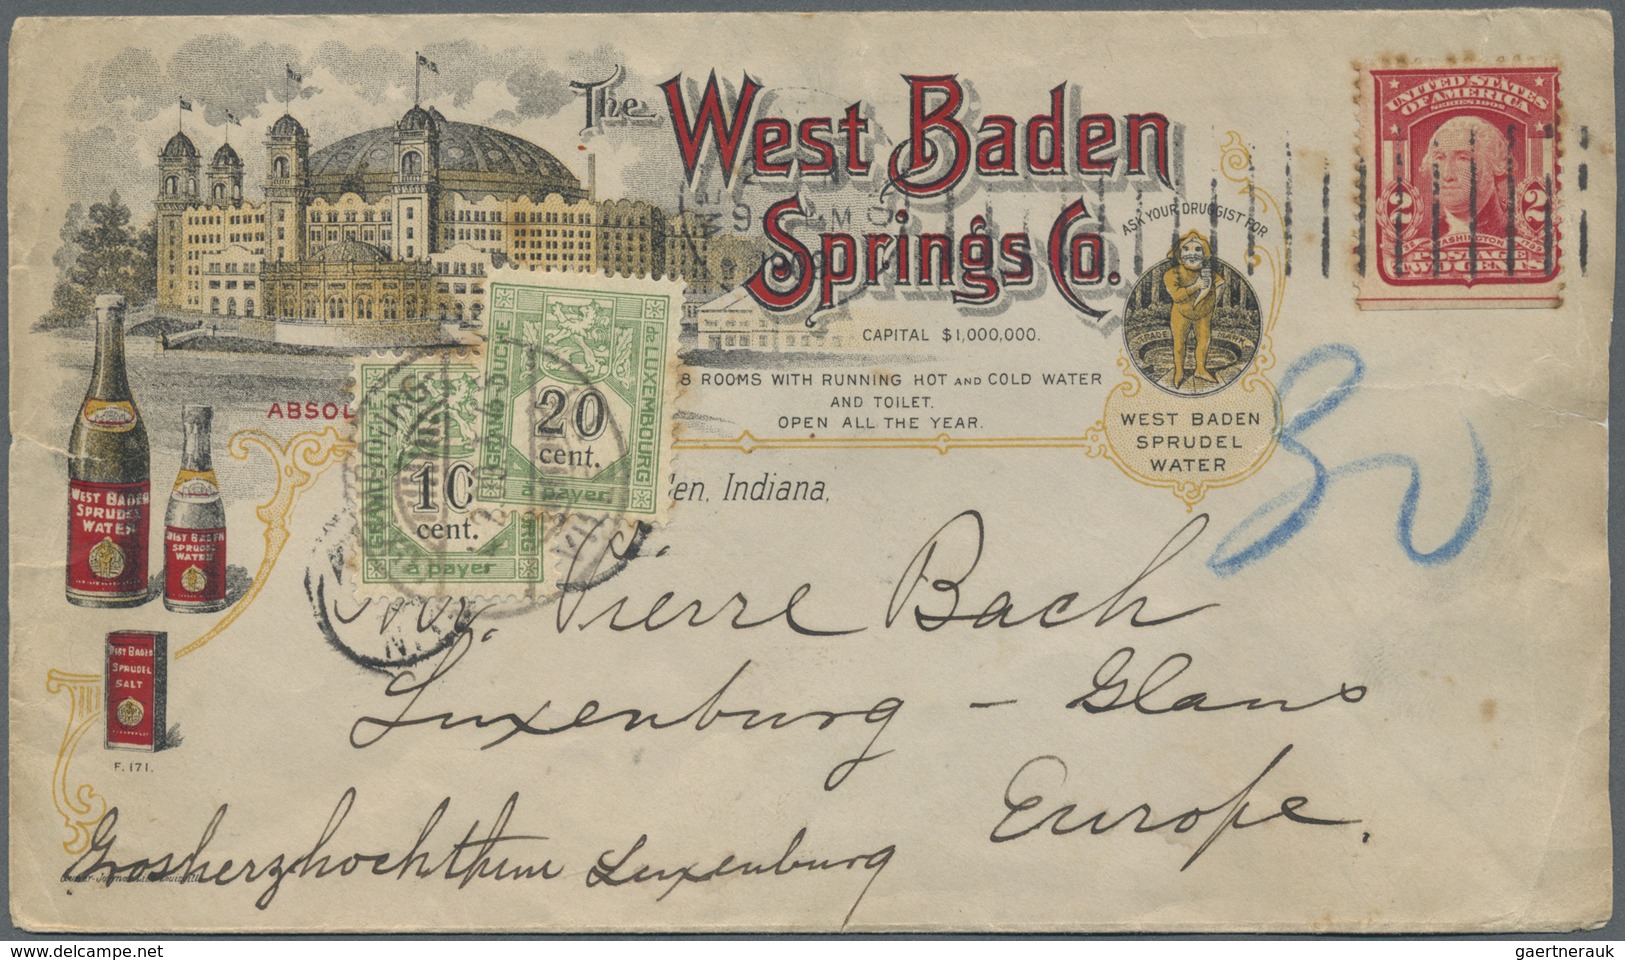 The West Baden
Springs Co.
CAPITAL $1,000,000.
8 ROOMS WITH RUNNING HOT AND COLD WATER
AND TOILET.
OPEN ALL THE YEAR.
ABSOL
en, Indiana,
ASK YOUR DRUGGIST FOR
TRADE MARK
WEST BADEN
SPRUDEL
WATER
UNITED STATES
OF AMERICA
SERIES 1902
2 2
WASHINGTON
POSTAGE
TWO CENTS
GRAND-DUCHÉ
de LUXEMBOURG
20
cent.
à payer
GRAND-DUCHÉ
10
cent.
à payer
WEST BADEN
SPRUDEL
WATER
WEST BADEN
SPRUDEL
WATER
WEST BADEN
SPRUDEL
SALT
F. 171.
30
Mr. Pierre Bach
Luxenburg – Glaus
Europe.
Grosherzhochthum Luxenburg
gaertnerauk